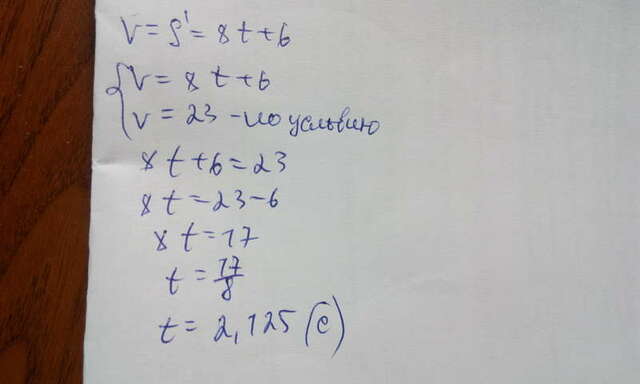 V = S' = 8t + 6
{ V = 8t + 6
V = 23 - по условию
8t + 6 = 23
8t = 23 - 6
8t = 17
t = 17/8
t = 2,125 (с)